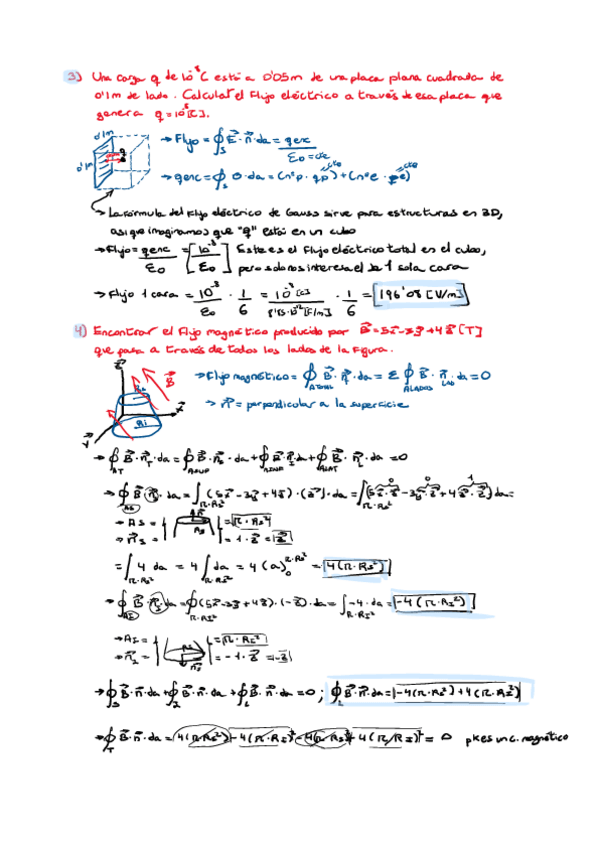 3) Una carga q de 10⁻⁸C está a 0'05m de una placa plana cuadrada de
0'1m de lado. Calcular el Flujo eléctrico a través de esa placa que
genera q = 10⁻⁸[C].
0'1m
0'1m
q
→ Flujo = ∮s E⃗·n⃗·da = qenc / ε₀=cte
→ qenc = ∮s σ·da = (nºp · qp) + (nºe · qe)
cte
cte
→ La fórmula del Flujo eléctrico de Gauss sirve para estructuras en 3D,
así que imaginamos que "q" está en un cubo
→ Flujo = qenc/ε₀ = [10⁻⁸/ε₀] Este es el Flujo eléctrico total en el cubo,
pero solo nos interesa el de 1 sola cara
→ Flujo 1 cara = 10⁻⁸/ε₀ · 1/6 = 10⁻⁸[C]/8'85·10⁻¹²[F/m] · 1/6 = 196'08 [V/m]
4) Encontrar el Flujo magnético producido por B⃗ = 5x⃗ - 3y⃗ + 4z⃗ [T]
que pasa a través de todos los lados de la Figura.
B⃗
→ Flujo magnético = ∮ATOTAL B⃗·n⃗·da = Σ∮ALADOS B⃗·n⃗LAD·da = 0
→ n⃗ = perpendicular a la superficie
→ ∮AT B⃗·n⃗T·da = ∮ASUP B⃗·n⃗s·da + ∮AINF B⃗·n⃗I·da + ∮ALAT B⃗·n⃗L·da = 0
→ ∮AS B⃗·n⃗s·da = ∫π·Rs² (5x⃗ - 3y⃗ + 4z⃗)·(z⃗)·da = ∫π·Rs² (5x⃗·z⃗ - 3y⃗·z⃗ + 4z⃗·z⃗)da =
→ As = = π·Rs²
→ n⃗s = = 1·z⃗ = z⃗
= ∫π·Rs² 4 da = 4∫π·Rs² da = 4(a)₀^π·Rs² = 4(π·Rs²)
→ ∮AI B⃗·n⃗I·da = ∮π·RI² (5x⃗ - 3y⃗ + 4z⃗)·(-z⃗)·da = ∫π·RI² -4·da = -4(π·RI²)
→ AI = = π·RI²
→ n⃗I = = -1·z⃗ = -z⃗
→ ∮S B⃗·n⃗·da + ∮I B⃗·n⃗·da + ∮L B⃗·n⃗·da = 0 ; ∮L B⃗·n⃗·da = -4(π·Rs²) + 4(π·RI²)
→ ∮T B⃗·n⃗·da = 4(π·Rs²) - 4(π·RI)² - 4(π·Rs)² + 4(π·RI)² = 0 pk es un c. magnético